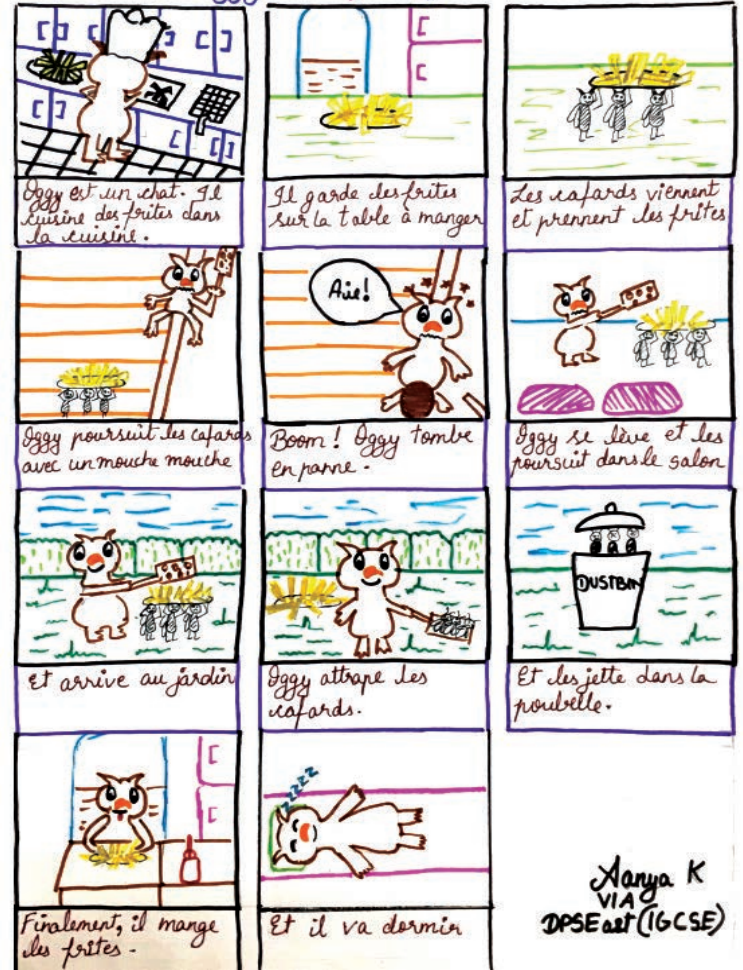 Oggy est un chat. Il
cuisine des frites dans
la cuisine.
Il garde les frites
sur la table à manger
Les cafards viennent
et prennent les frites
Oggy poursuit les cafards
avec un mouche mouche
Aie!
Boom! Oggy tombe
en panne.
Oggy se lève et les
poursuit dans le salon
Et arrive au jardin
Oggy attrape les
cafards.
DUSTBIN
Et les jette dans la
poubelle.
Finalement, il mange
les frites.
ZZZZZ
Et il va dormir
Aanya K
VIA
DPSEast (IGCSE)